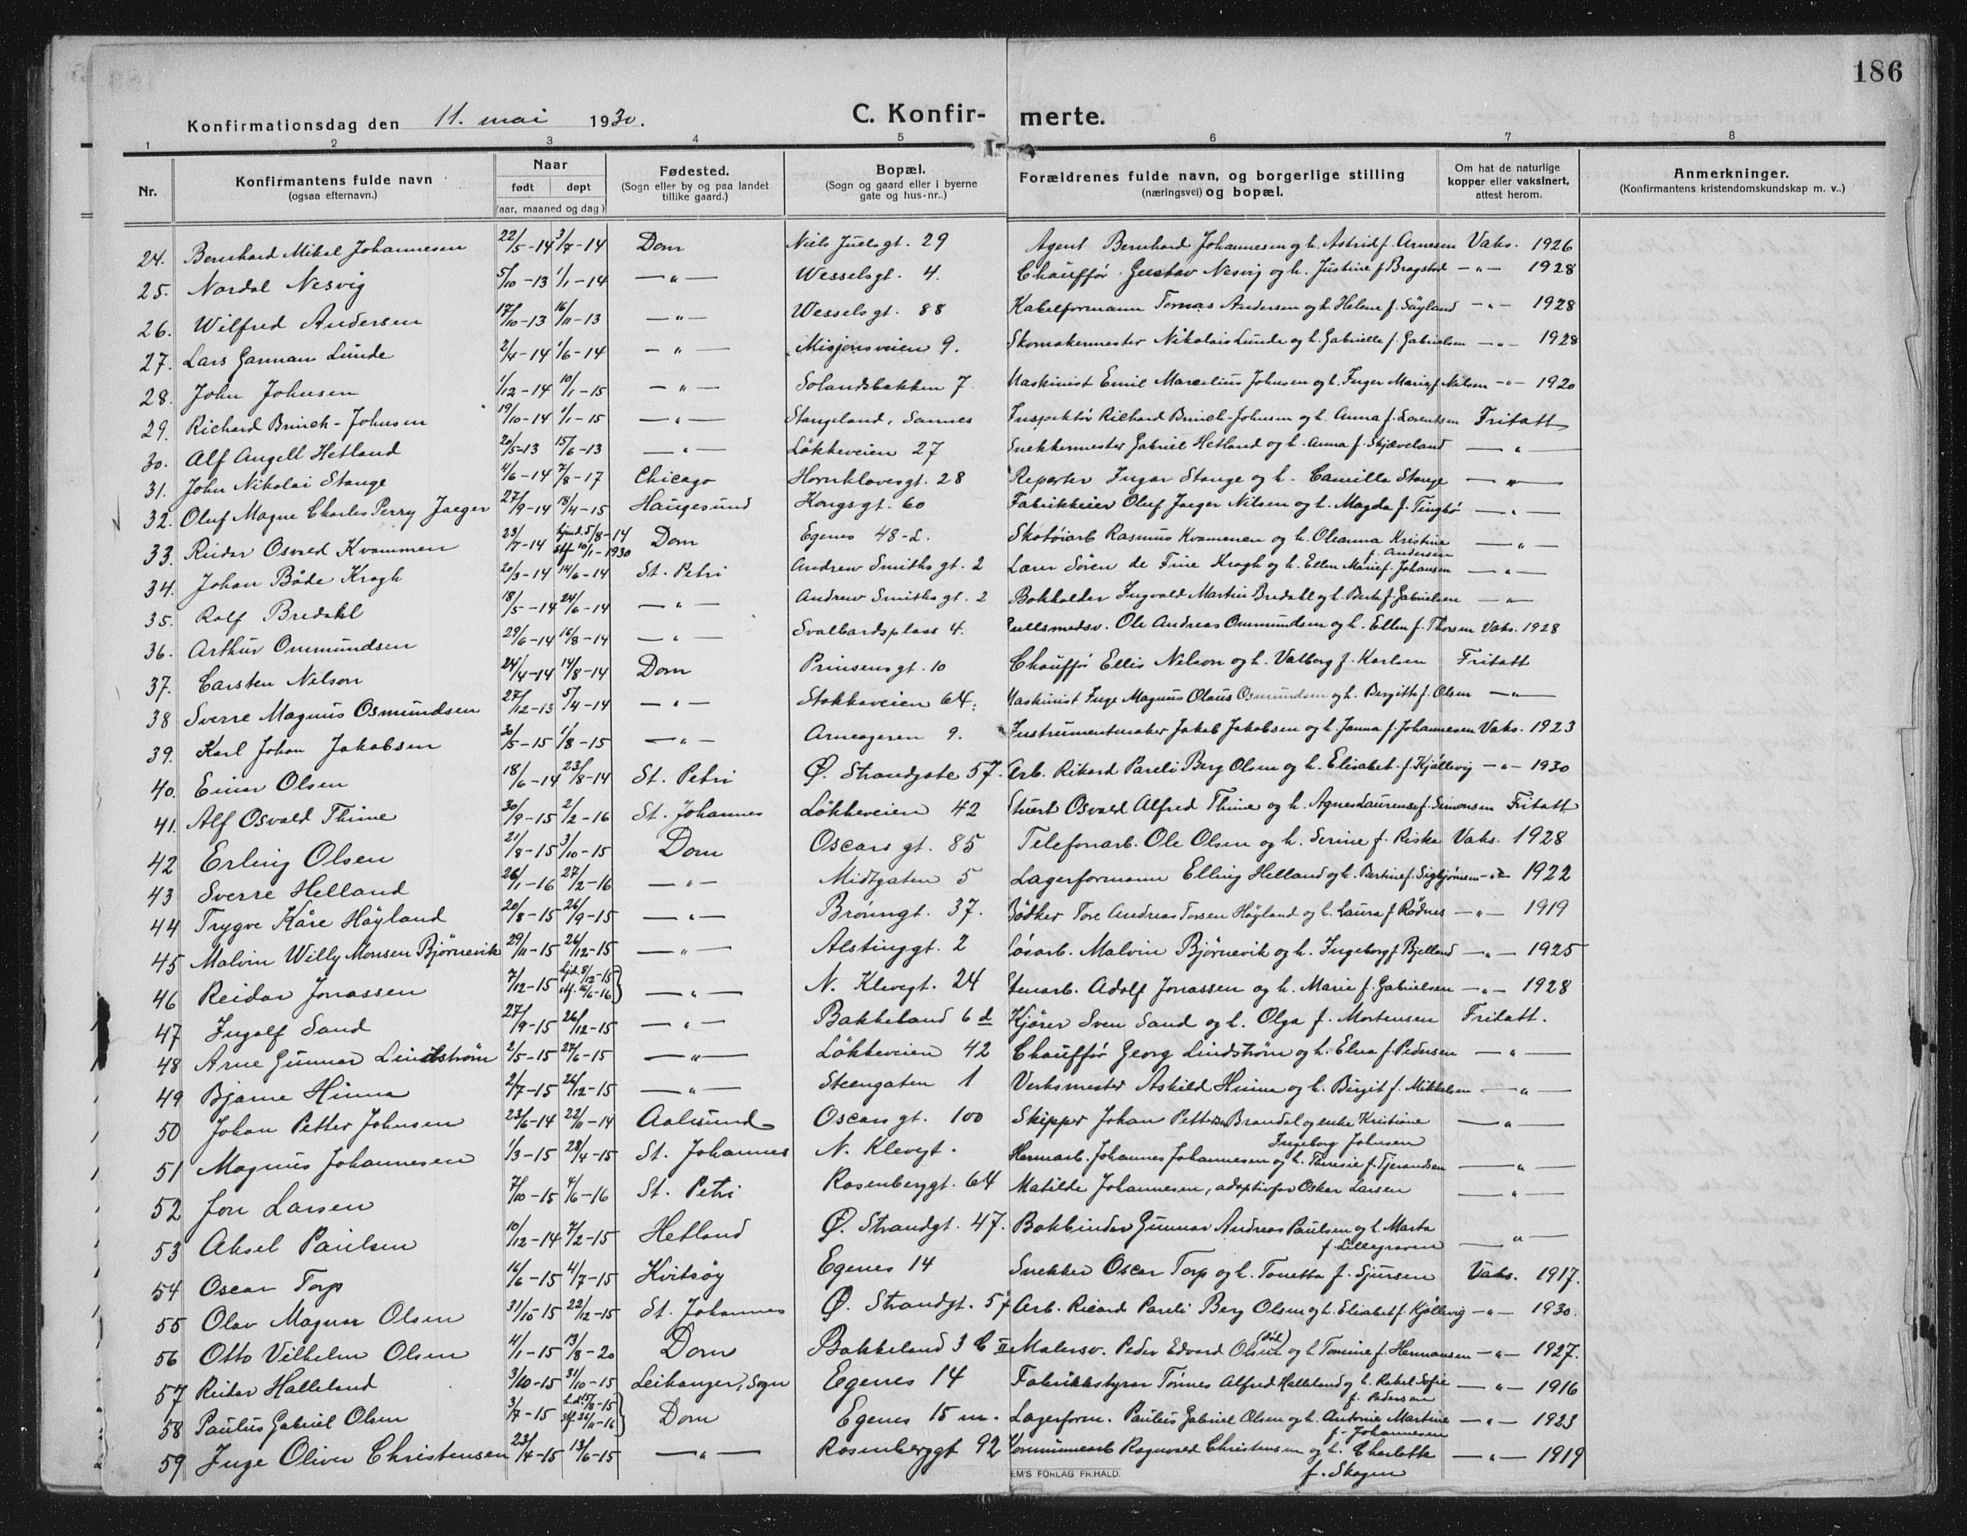 186
Konfirmationsdag den 11. mai 1930. C. Konfirmerte.
1 2 3 4 5 6 7 8
Nr. Konfirmantens fulde navn (ogsaa efternavn.) Naar født døpt (aar, maaned og dag) Fødested. (Sogn eller by og paa landet tillike gaard.) Bopæl. (Sogn og gaard eller i byerne gate og hus-nr.,) Forældrenes fulde navn, og borgerlige stilling (næringsvei) og bopæl. Om hat de naturlige kopper eller vaksinert, attest herom. Anmerkninger. (Konfirmantens kristendomskundskap m. v..)
24. Bernhard Mikal Johannesen 22/5-14 3/7-14 Dom Niels Juelsgt. 29 Agent Bernhard Johannesen og h. Astrid f. Arnesen Vaks. 1926
25. Nordal Nesvig 5/10-13 1/1-14 —"— Wesselsgt. 4. Chauffør Gustav Nesvig og h. Justine f Bragstad —"— 1928
26. Wilfred Andersen 17/10-13 16/11-13 —"— Wesselsgt. 88 Kabelformann Tomas Andersen og h. Helene f. Søyland —"— 1928
27. Lars Garman Lunde 2/4-14 1/6-14 —"— Misjonsveien 9. Skomakermester Nikolai Lunde og h. Gabrielle f. Gabrielsen —"— 1928
28. John Johnsen 1/12-14 10/1-15 —"— Solandsbakken 7. Maskinist Emil Marcelius Johnsen og h. Inger Marie f. Nilsen —"— 1920
29. Richard Brinch-Johnsen 19/10-14 1/1-15 —"— Stangeland, Sannes Inspektør Richard Brinch-Johnsen og h. Anna f. Lorentsen Fritatt
30. Alf Angell Hetland 20/5-13 15/6-13 —"— Løkkeveien 27 Snekkermester Gabriel Hetland og h. Anna f. Skjæveland —"—
31. John Nikolai Stange 4/6-14 7/8-17 Chicago Hornklovesgt. 28 Reporter Ingar Stange og h. Camilla Stange —"—
32. Oluf Magne Charles Perry Jaeger 27/9-14 18/4-15 Haugesund Kongsgt. 60 Fabrikkeier Oluf Jaeger Nilsen og h. Magda f. Tingbø —"—
33. Reidar Osvald Kvammen 23/7-14 hjmd. 5/8-14 stf. 10/1-1930 Dom Egenes 48-d. Skotøiarb Rasmus Kvammen og h. Oleanna Kristine f. Andersen —"—
34. Johan Bøde Krogh 20/3-14 14/6-14 St. Petri Andrew Smiths gt. 2 Lærer Sören de Fine Krogh og h. Ellen Marie f. Johansen —"—
35. Rolf Bredahl 18/5-14 24/6-14 —"— Andrew Smiths gt. 2 Bokholder Ingvald Martin Bredahl og h. Berta f. Gabrielsen —"—
36. Arthur Ommundsen 29/6-14 16/8-14 —"— Svalbardsplass 4. Gullsmedsv. Ole Andreas Ommundsen og h. Ellen f. Thorsen Vaks. 1928
37. Carsten Nilson 24/4-14 14/8-14 Dom Prinsensgt. 10 Chauffør Ellis Nilson og h. Valborg f. Karlsen Fritatt
38 Sverre Magnus Osmundsen 27/12-13 5/4-14 —"— Stokkaveien 64. Maskinist Inge Magnus Olaus Osmundsen og h. Bergitte f. Olsen —"—
39. Karl Johan Jakobsen 30/5-15 1/8-15 —"— Arneageren 9. Instrumentmaker Jakob Jakobsen og h. Janna f. Johannesen Vaks. 1923
40. Einar Olsen 18/6-14 23/8-14 St. Petri Ø. Strandgate 57. Arb. Rikard Pareli Berg Olsen og h. Elisabet f. Kjøllevig —"— 1930
41. Alf Osvald Thime 30/9-15 2/2-16 St. Johannes Løkkeveien 42 Stuert Osvald Alfred Thime og h. Agnes Laurense f. Simonsen Fritatt
42 Erling Olsen 21/8-15 3/10-15 Dom Oscars gt. 85 Telefonarb. Ole Olsen og h. Serine f. Riska Vaks. 1928
43 Sverre Helland 26/1-16 27/2-16 —"— Midtgaten 5 Lagerformann Elling Helland og h. Bertine f. Sigbjørnsen —"— 1922
44 Trygve Kåre Höyland 20/8-15 26/9-15 —"— Brönngt. 37. Bödker Tore Andreas Torsen Höyland og h. Laura f. Rødnes —"— 1919
45 Malvin Willy Monsen Bjørnevik 29/11-15 26/12-15 —"— Alstinggt. 2 Løsarb. Malvin Bjørnevik og h. Ingeborg f Bjelland —"— 1925
46 Reidar Jonassen 7/12-15 hjd. 8/12-15 stf. 12/6-16 —"— N. Klevegt. 24 Stenarb. Adolf Jonassen og h. Marie f. Gabrielsen —"— 1928
47 Ingolf Sand 27/9-15 26/12-15 —"— Bakkeland 6 d Kjører Sven Sand og h. Olga f. Mortensen Fritatt.
48 Arne Gunnar Lindstrøm 2/5-15 27/6-15 —"— Løkkeveien 42 Chauffør Georg Lindstrøm og h. Elna f. Pedersen —"—
49 Bjarne Hinna 2/7-15 26/12-15 —"— Steengaten 1 Verksmester Askild Hinna og h. Birgit f. Mikkelsen —"—
50 Johan Petter Johnsen 23/6-14 22/11-14 Aalesund Oscarsgt. 100 Skipper Johan Petter Brandal og enke Kristine Ingeborg Johnsen —"—
51 Magnus Johannesen 1/3-15 28/4-15 St. Johannes N. Klevegt. Hermarb. Johannes Johannesen og h. Theresie f. Tjerandsen —"—
52 Jon Larsen 7/10-15 4/6-16 St. Petri Rosenberggt. 64 Matilde Johannesen, adoptivfar Oskar Larsen —"—
53 Aksel Paulsen 10/12-14 7/2-15 Hetland Ø. Strandgt. 47. Bokbinder Gunnar Andreas Paulsen og h. Marta f. Lillegraven —"—
54 Oscar Torp 16/6-15 4/7-15 Kvitsøy Egenes 14 Snekker Oscar Torp og h. Tonetta f. Sjursen Vaks. 1917.
55 Olav Magnar Olsen 31/10-15 22/12-15 St. Johannes Ø. Strandgt. 57 Arb. Ricard Pareli Berg Olsen og h. Elisabet f. Kjøllevig —"— 1930.
56 Otto Vilhelm Olsen 4/1-15 13/8-20 Dom Bakkeland 3 b II Malersv. Peder Edvard Olsen (död) og h. Tomine f. Hermansen —"— 1927.
57 Reidar Halleland 3/10-15 31/10-15 Leikanger, Sogn Egenes 14 Fabrikkstyrer Tørnes Alfred Halleland og h. Rakel Sofie f. Pedersen —"— 1916
58 Paulus Gabriel Olsen 3/7-15 h.d. 15/8-15 stf. 26/11-16 Dom Egenes 15 m. Lagerform. Paulus Gabriel Olsen og h. Antonie Martine f. Johannesen —"— 1923
59 Inge Oliver Christensen 23/4-15 13/6-15 —"— Rosenberggt 92 Kommunearb Ragnvald Christensen og h. Charlotte f. Skogen —"— 1919
EM'S FORLAG FR.HALD.